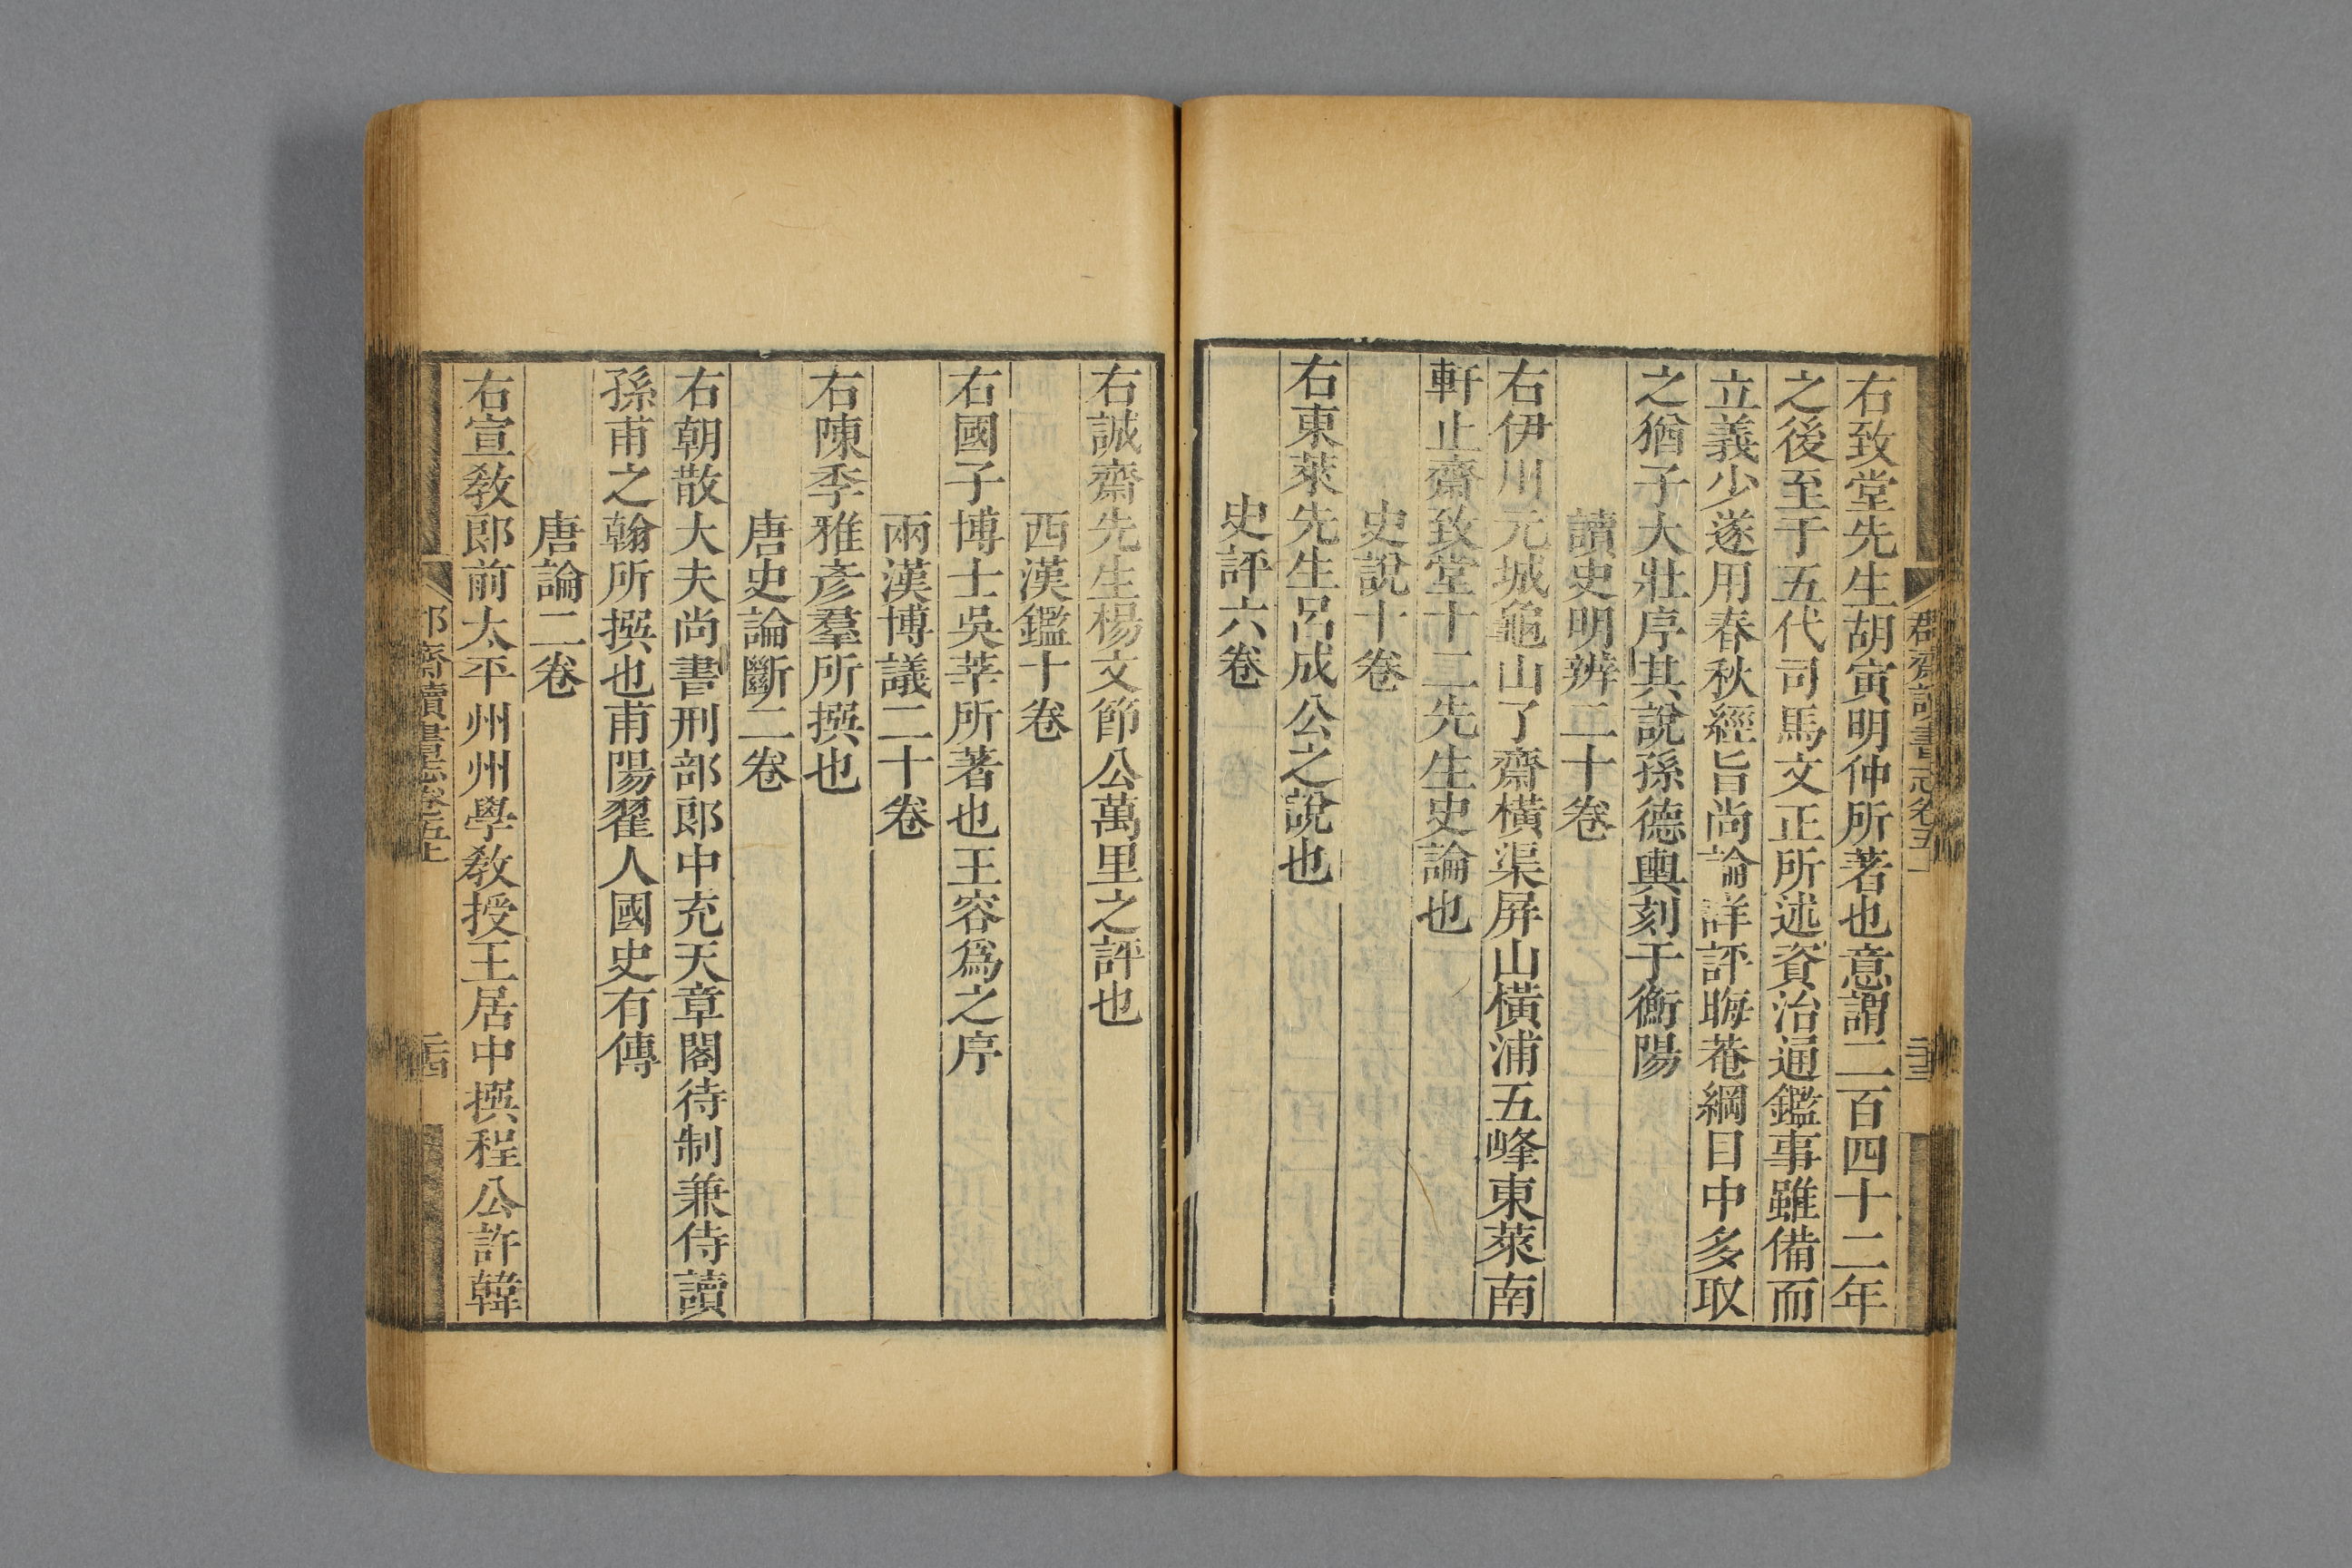 右致堂先生胡寅明仲所著也意謂二百四十二年
之後至于五代司馬文正所述資治通鑑事雖備而
立義少遂用春秋經旨尚論詳評晦菴綱目中多取
之猶子大壯序其說孫德輿刻于衡陽
讀史明辨二十卷
右伊川元城龜山了齋橫渠屏山橫浦五峰東萊南
軒止齋致堂十二先生史論也
史說十卷
右東萊先生呂成公之說也
史評六卷
右誠齋先生楊文節公萬里之評也
西漢鑑十卷
右國子博士吳莘所著也王容爲之序
兩漢博議二十卷
右陳季雅彥羣所撰也
唐史論斷二卷
右朝散大夫尚書刑部郎中充天章閣待制兼侍讀
孫甫之翰所撰也甫陽翟人國史有傳
唐論二卷
右宣教郎前太平州州學教授王居中撰程公許韓
郡齋讀書志卷五上
二十四